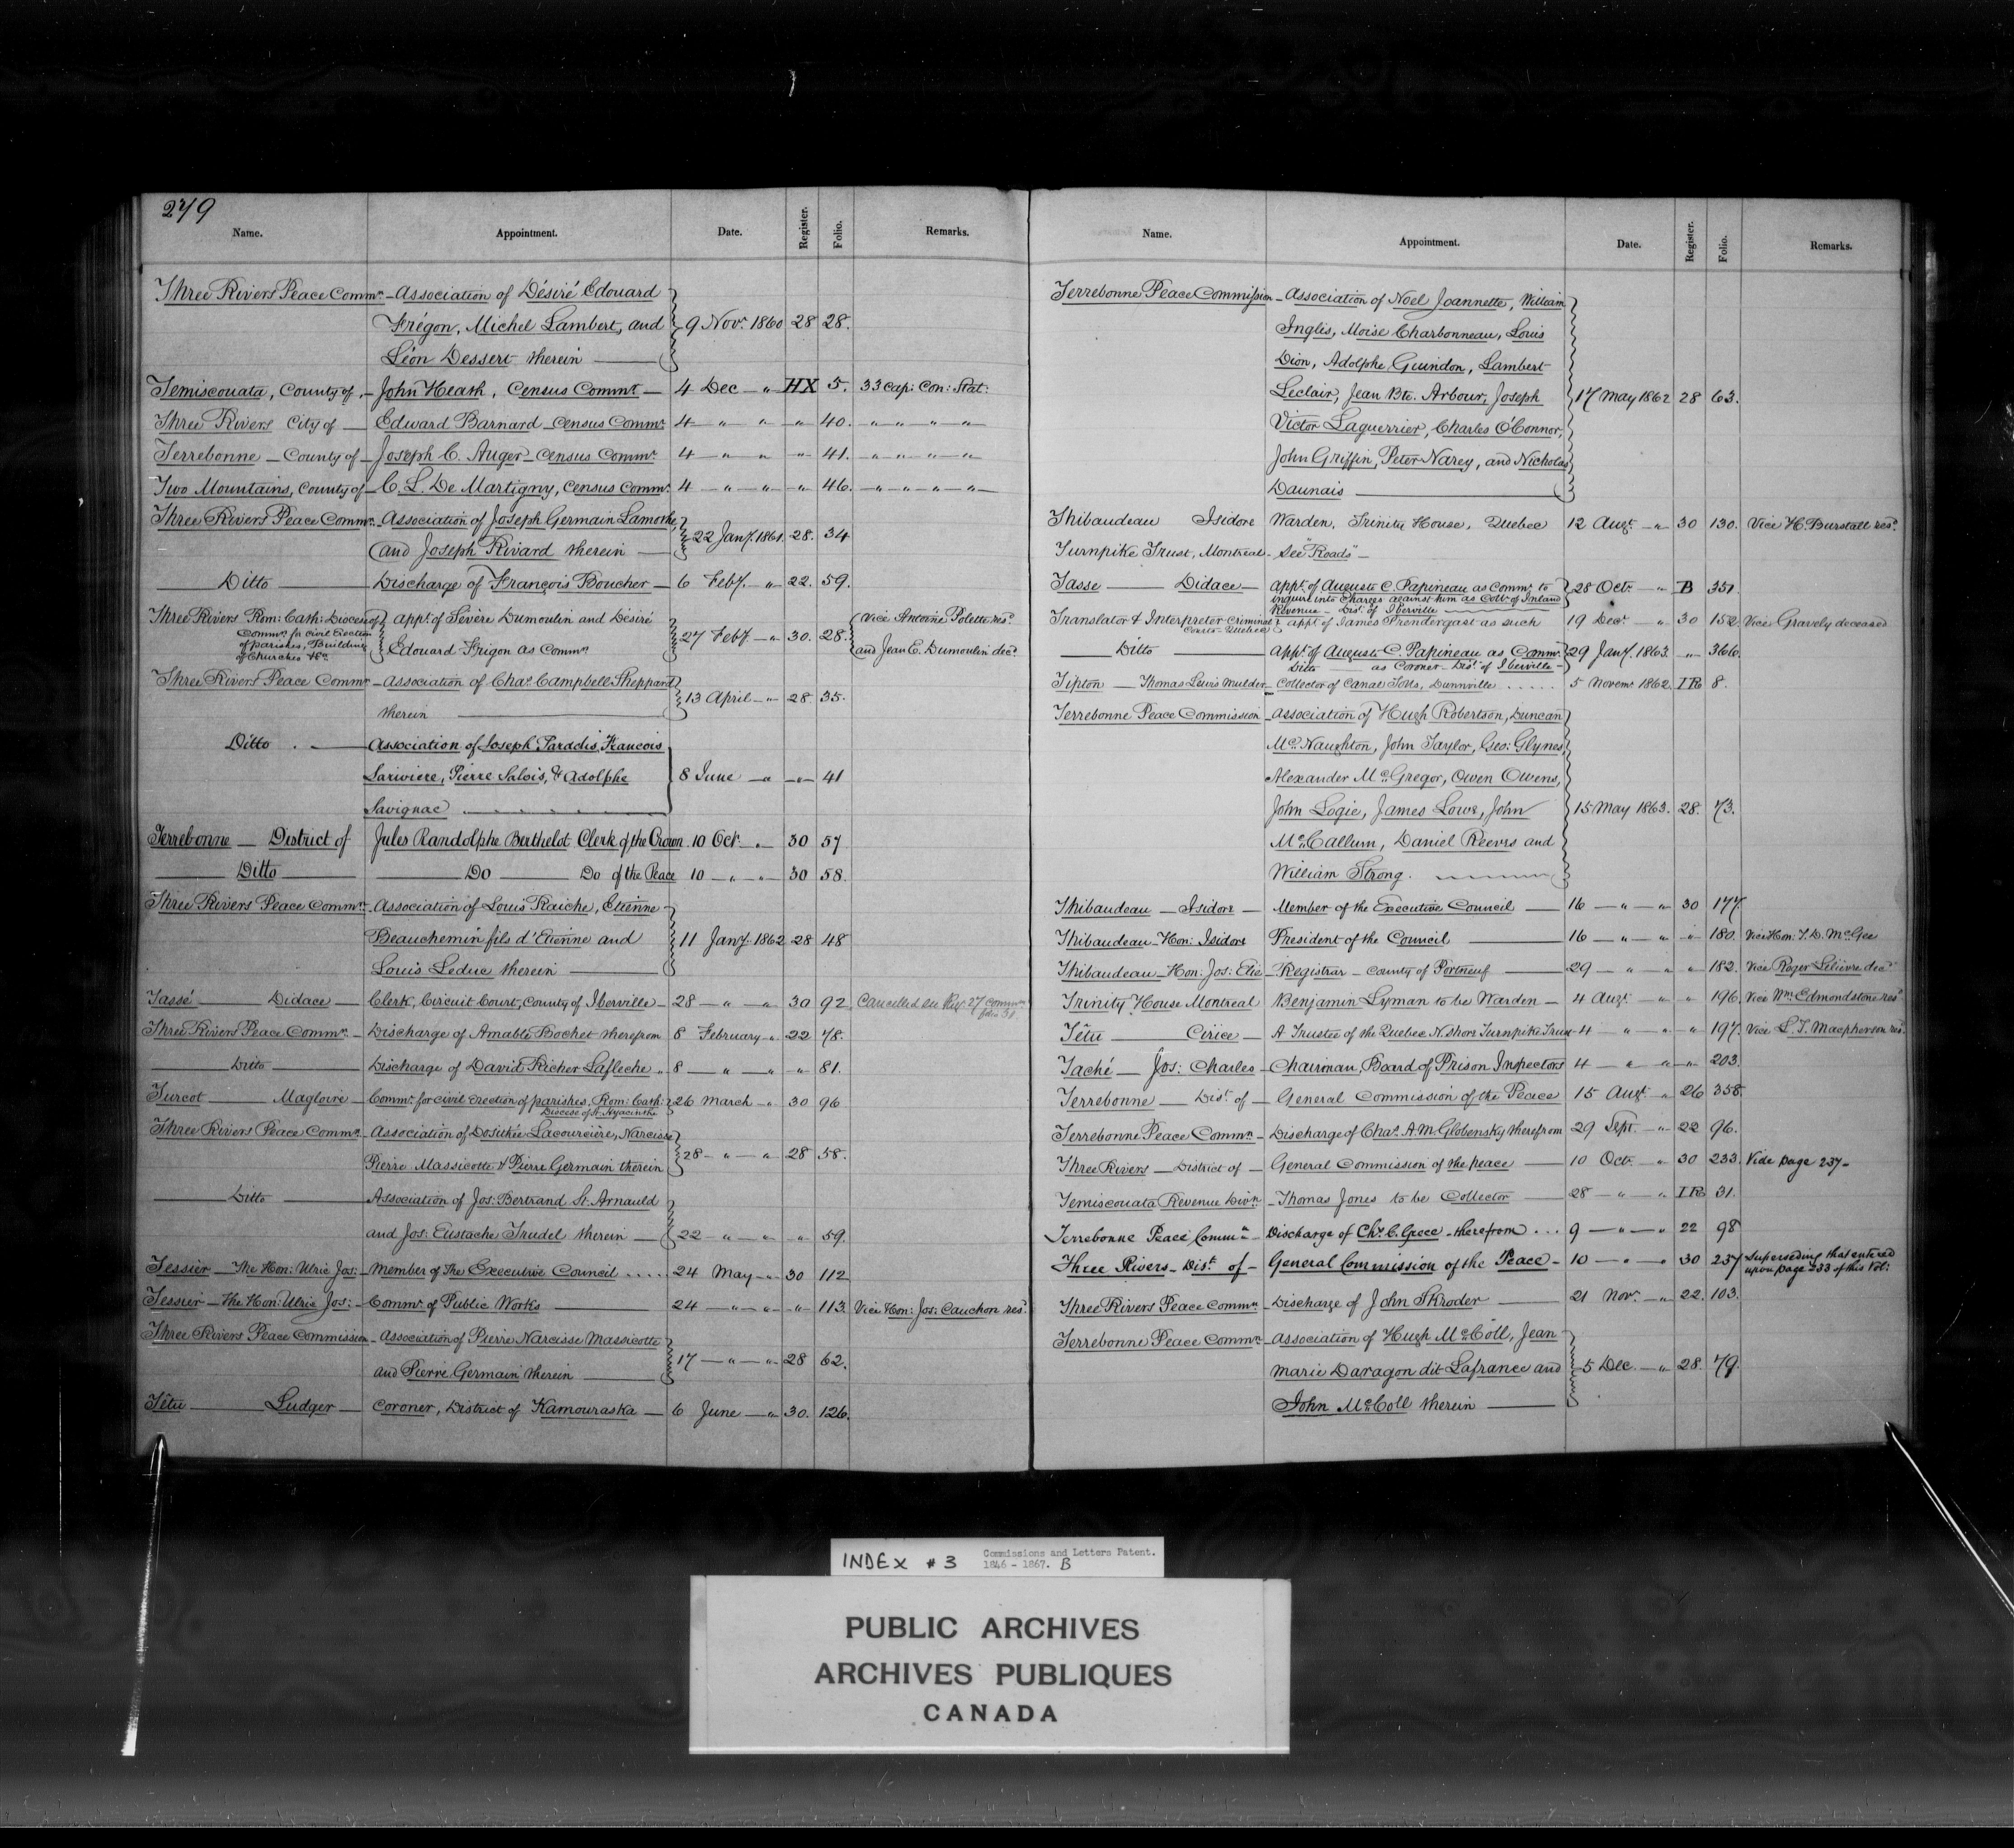 279
Name. Appointment. Date. Register. Folio. Remarks.
Three Rivers Peace Commn. - Association of Désiré Edouard
Frégon, Michel Lambert, and 9 Novr. 1860 28 28.
Léon Dessert therein
Temiscouata, County of - John Heath, Census Commr. 4 Dec " HX 5. 33 Cap: Con: Stat:
Three Rivers City of Edward Barnard Census Commr. 4 " " " 40. " " " "
Terrebonne County of Joseph C. Auger Census Commr. 4 " " " 41. " " " "
Two Mountains, County of C. L. De Martigny, Census Commr. 4 " " " 46. " " " "
Three Rivers Peace Commn. Association of Joseph Germain Lamothe,
and Joseph Rivard therein 22 Jany. 1861. 28. 34
Ditto Discharge of François Boucher 6 Feby. " 22. 59.
Three Rivers Rom: Cath: Diocese of appt. of Sévère Dumoulin and Désiré (Vice Antoine Polette resd.
Commn. for civil Erection
of parishes, Building 27 Feby. " 30. 28.
of Churches &ca. Edouard Frigon as Commrs. and Jean E. Dumoulin decd.
Three Rivers Peace Commn. - Association of Chas. Campbell Sheppard
therein 13 April " 28. 35.
Ditto Association of Joseph Paradis, Francois
Lariviere, Pierre Salois, & Adolphe 8 June " " 41
Savignac
Terrebonne District of Jules Randolphe Berthelot Clerk of the Crown 10 Octr. " 30 57
Ditto Do Do of the Peace 10 " " 30 58.
Three Rivers Peace Commn. - Association of Louis Raiche, Etienne
Beauchemin fils d'Etienne and 11 Jany. 1862 28 48
Louis Leduc therein
Tassé Didace Clerk, Circuit Court, County of Iberville 28 " " 30 92. Cancelled on Reg. 27 Commns.
folio 31.
Three Rivers Peace Commn. - Discharge of Amable Bochet therefrom 8 February " 22 78.
Ditto Discharge of David Richer Lafleche " 8 " " " 81.
Turcot Magloire Commr. for civil Erection of parishes, Rom: Cath: 26 March " 30 96
Diocese of St. Hyacinthe
Three Rivers Peace Commn. - Association of Dosithée Lacourcière, Narcisse
Pierre Massicotte & Pierre Germain therein 28 " " 28 58.
Ditto Association of Jos: Bertrand St. Arnauld
and Jos: Eustache Trudel therein 22 " " " 59.
Tessier The Hon: Ulric Jos: Member of The Executive Council .... 24 May " 30 112
Tessier the Hon: Ulric Jos: - Commr. of Public Works 24 " " " 113. Vice Hon: Jos: Cauchon resd.
Three Rivers Peace Commission - Association of Pierre Narcisse Massicotte
and Pierre Germain therein 17 " " 28 62.
Têtu Ludger Coroner, District of Kamouraska 6 June " 30. 126.
Name. Appointment. Date. Register. Folio. Remarks.
Terrebonne Peace Commission - Association of Noel Joannette, William
Inglis, Moise Charbonneau, Louis
Dion, Adolphe Guindon, Lambert
Leclair, Jean Bte. Arbour, Joseph 17 May 1862 28 63.
Victor Laguerrier, Charles O'Connor,
John Griffin, Peter Narey, and Nicholas
Daunais
Thibaudeau Isidore Warden, Trinity House, Quebec 12 Augt. " 30 130. Vice H. Burstall resd.
Turnpike Trust, Montreal - See "Roads"
Tasse Didace appt. of Auguste C. Papineau as Commr. to 28 Octr. " B 351.
inquire into Charges against him as Collr. of Inland
Revenue - Dist. of Iberville
Translator & Interpreter Criminal appt. of James Prendergast as such 19 Decr. " 30 152. Vice Gravely deceased
Courts Quebec
Ditto appt. of Auguste C. Papineau as Commr. 29 Jany. 1863. " 366.
Ditto as Coroner - Dist. of Iberville
Tipton Thomas Lewis Mulder Collector of Canal Tolls, Dunnville ..... 5 Novemr. 1862. IR 8.
Terrebonne Peace Commission - Association of Hugh Robertson, Duncan
McNaughton, John Taylor, Geo: Glynes,
Alexander McGregor, Owen Owens,
John Logie, James Lowe, John 15 May 1863. 28. 73.
McCallum, Daniel Reeves and
William Strong.
Thibaudeau Isidore Member of the Executive Council 16 " " 30 177.
Thibaudeau Hon: Isidore President of the Council 16 " " " 180. Vice Hon: T. D. McGee
Thibaudeau Hon: Jos: Elie Registrar County of Portneuf 29 " " " 182. Vice Roger Lelièvre decd.
Trinity House Montreal Benjamin Lyman to be Warden 4 Augt. " " 196. Vice Wm. Edmondstone resd.
Têtu Cirice A Trustee of the Quebec N. Shore Turnpike Trust 4 " " " 197. Vice L. T. Macpherson resd.
Taché Jos: Charles Chairman, Board of Prison Inspectors 4 " " " 203.
Terrebonne Dist. of General Commission of the Peace 15 Augt. " 26 358.
Terrebonne Peace Commn. - Discharge of Chas. A. M. Globensky therefrom 29 Sept. " 22 96.
Three Rivers District of General Commission of the peace 10 Octr. " 30 233. Vide page 237
Temiscouata Revenue Divn. Thomas Jones to be Collector 28 " " IR 31.
Terrebonne Peace Commn. Discharge of Chs. C. Grece therefrom ... 9 " " 22 98
Three Rivers Dist. of General Commission of the Peace 10 " " 30 237 Superseding that entered
upon page 233 of this Vol:
Three Rivers Peace Commn. Discharge of John Skroder 21 Novr. " 22. 103.
Terrebonne Peace Commn. Association of Hugh McColl, Jean
Marie Daragon dit Lafrance and 5 Dec. " 28. 79.
John McColl therein
INDEX # 3 Commissions and Letters Patent.
1846 - 1867. B
PUBLIC ARCHIVES
ARCHIVES PUBLIQUES
CANADA